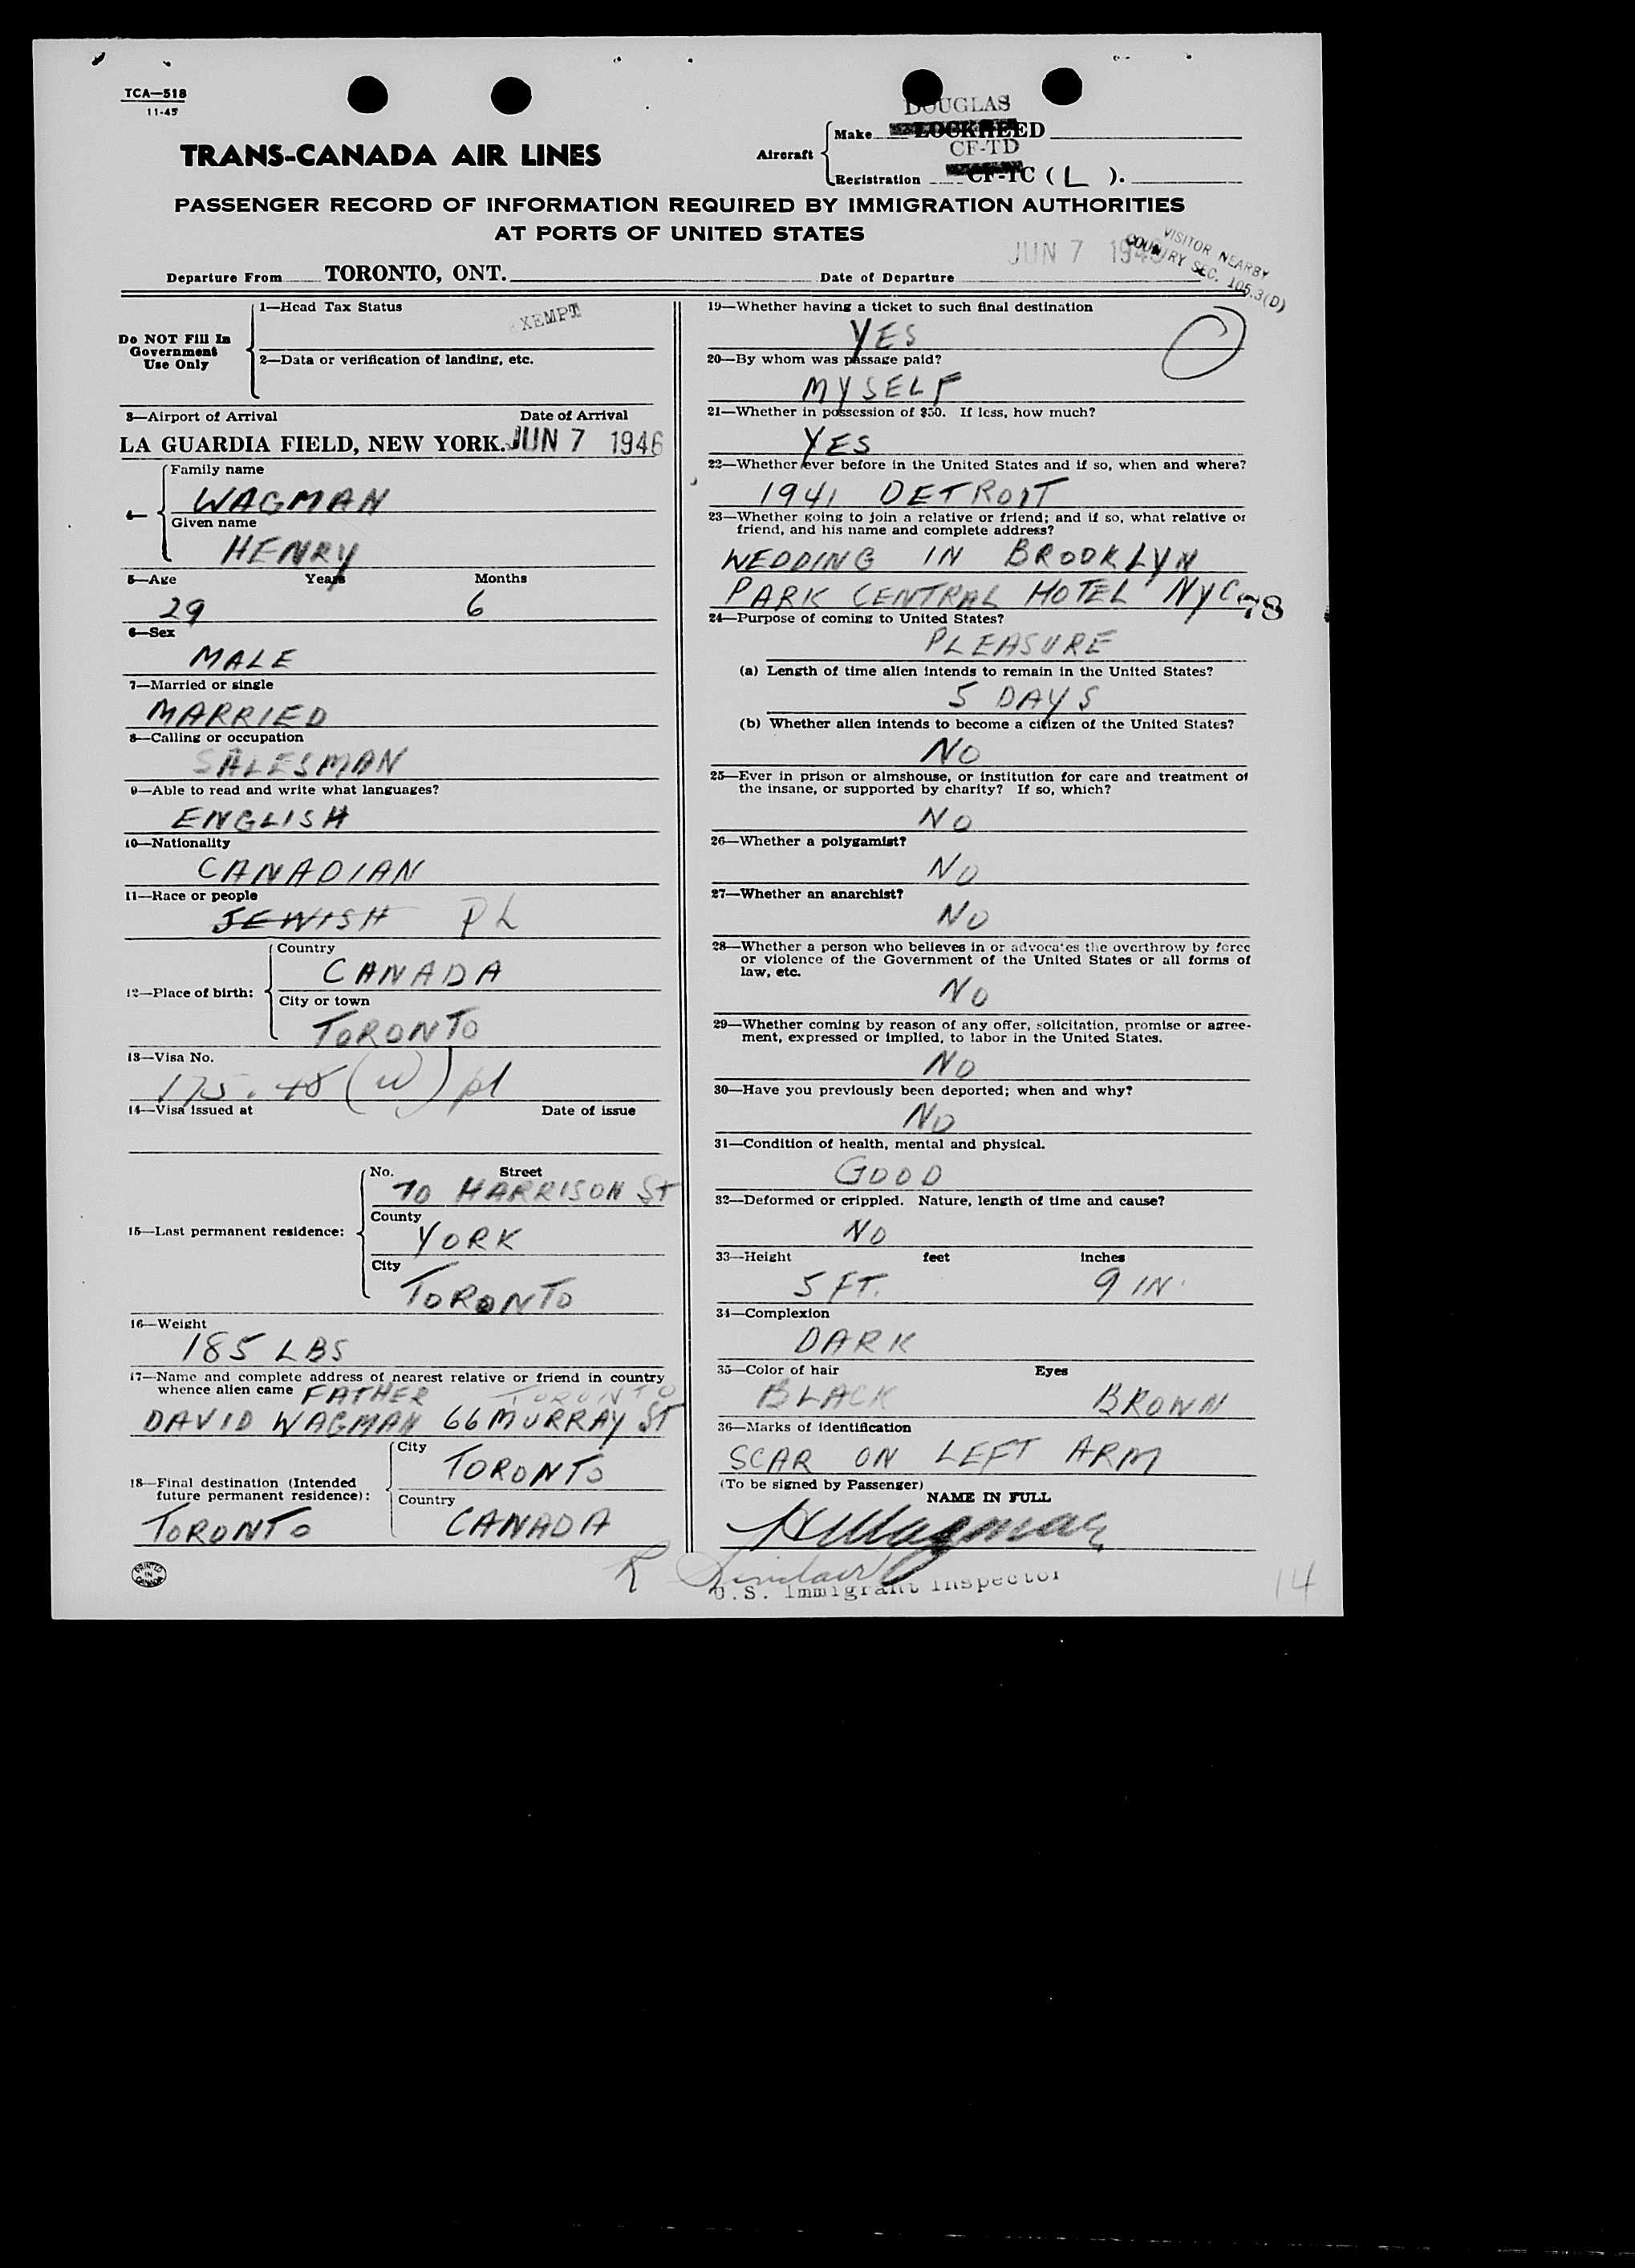 TCA—518
11-45
DOUGLAS
Aircraft
Make LOCKHEED
CF-TD
Registration CF-TC ( L ).
TRANS-CANADA AIR LINES
PASSENGER RECORD OF INFORMATION REQUIRED BY IMMIGRATION AUTHORITIES
AT PORTS OF UNITED STATES
VISITOR NEARBY
COUNTRY SEC. 105.3(D)
JUN 7 194
Departure From TORONTO, ONT. Date of Departure
Do NOT Fill In
Government
Use Only
1—Head Tax Status
XEMPT
2—Data or verification of landing, etc.
3—Airport of Arrival Date of Arrival
LA GUARDIA FIELD, NEW YORK. JUN 7 1946
4—
Family name
WAGMAN
Given name
HENRY
5—Age Years Months
29 6
6—Sex
MALE
7—Married or single
MARRIED
8—Calling or occupation
SALESMAN
9—Able to read and write what languages?
ENGLISH
10—Nationality
CANADIAN
11—Race or people
JEWISH PL
12—Place of birth:
Country
CANADA
City or town
TORONTO
13—Visa No.
175.48 (W) pl
14—Visa issued at Date of issue
15—Last permanent residence:
No. Street
70 HARRISON ST
County
YORK
City
TORONTO
16—Weight
185 LBS
17—Name and complete address of nearest relative or friend in country
whence alien came FATHER TORONTO
DAVID WAGMAN 66 MURRAY ST
18—Final destination (Intended
future permanent residence):
TORONTO
City
TORONTO
Country
CANADA
PRINTED
IN
CANADA
19—Whether having a ticket to such final destination
YES
20—By whom was passage paid?
MYSELF
21—Whether in possession of $50. If less, how much?
YES
22—Whether ever before in the United States and if so, when and where?
1941 DETROIT
23—Whether going to join a relative or friend; and if so, what relative or
friend, and his name and complete address?
WEDDING IN BROOKLYN
PARK CENTRAL HOTEL NYC 78
24—Purpose of coming to United States?
PLEASURE
(a) Length of time alien intends to remain in the United States?
5 DAYS
(b) Whether alien intends to become a citizen of the United States?
NO
25—Ever in prison or almshouse, or institution for care and treatment of
the insane, or supported by charity? If so, which?
NO
26—Whether a polygamist?
NO
27—Whether an anarchist?
NO
28—Whether a person who believes in or advocates the overthrow by force
or violence of the Government of the United States or all forms of
law, etc.
NO
29—Whether coming by reason of any offer, solicitation, promise or agree-
ment, expressed or implied, to labor in the United States.
NO
30—Have you previously been deported; when and why?
NO
31—Condition of health, mental and physical.
GOOD
32—Deformed or crippled. Nature, length of time and cause?
NO
33—Height feet inches
5 FT. 9 IN.
34—Complexion
DARK
35—Color of hair Eyes
BLACK BROWN
36—Marks of identification
SCAR ON LEFT ARM
(To be signed by Passenger)
NAME IN FULL
H Wagman
R Sinclair
U.S. Immigrant Inspector
14